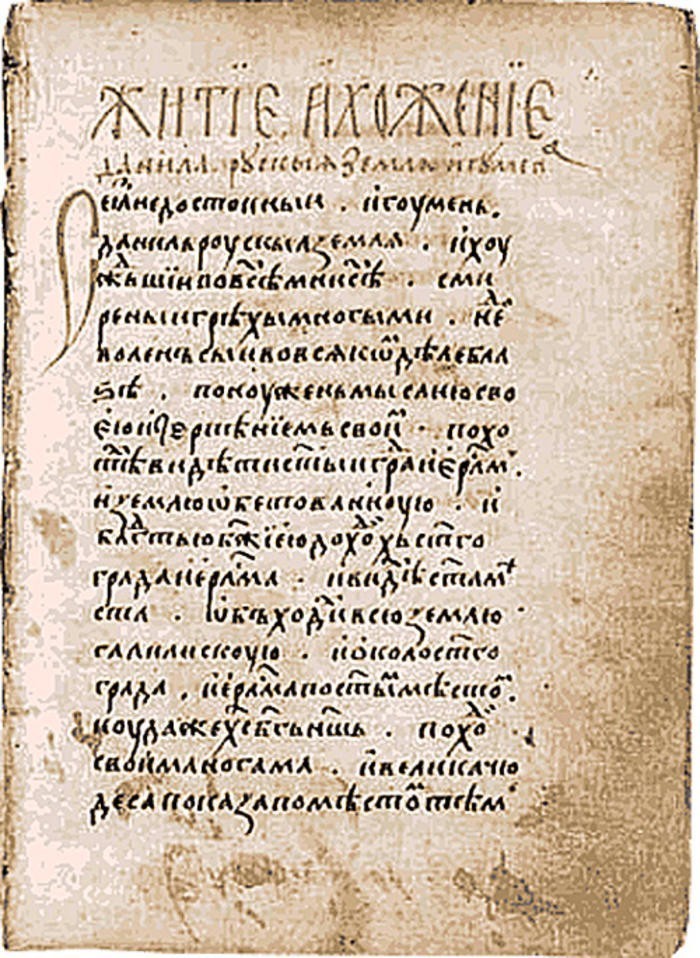 ЖИТЇЕ, ИХОЖЕНЇЕ
данила, рускыѧ земли игумена
Сеи недостоиныи . игоумень.
данилъ роускыѧ землѧ . ихоу
жьшїи вовсѣ мнисѣ . сми
реныи грѣхы многыми . не
воленъ сыи вовсѧкѡ дѣле бла
зѣ . поноуженъ мыслию сво
ею инетерпѣнїемь своїм . похо
тѣ видѣти ст҃ыи гра иерлм҃.
и землю ѡбетованную . и
блгⷣтью бж҃їею дохоⷣхъ ст҃го
града иерлм҃а . и видѣ ст҃аѧ м
ста . ѡбъходи всю землю
галилискоую . иѡколо ст҃го
града . иерлм҃а по ст҃ым мѣстом.
коудаже хс҃ бг҃ъ нш҃ь . похоⷣ
своима ногама . и велика чю
деса показа по мѣстом тѣм